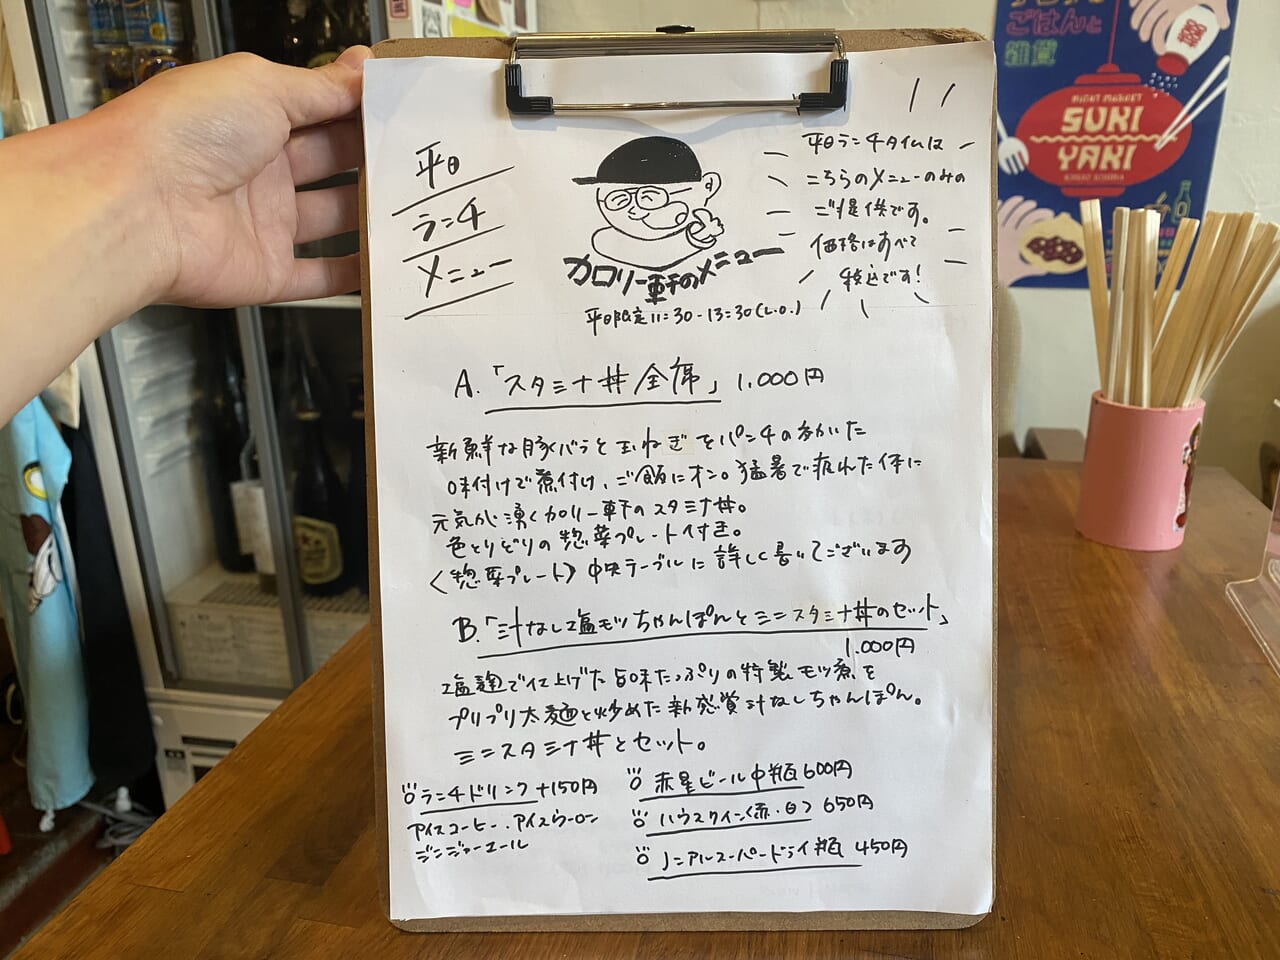 平日
ランチ
メニュー
カロリー軒のメニュー
平日限定11:30-13:30(L.O.)
平日ランチタイムは
こちらのメニューのみの
ご提供です。
価格はすべて
税込です!
A.「スタミナ丼全席」1.000円
新鮮な豚バラと玉ねぎをパンチの効いた
味付けで煮付け、ご飯にオン。猛暑で疲れた体に
元気が湧くカロリー軒のスタミナ丼。
色とりどりの惣菜プレート付き。
〈惣菜プレート〉中央テーブルに詳しく書いてございます
B.「汁なし塩モツちゃんぽんとミニスタミナ丼のセット」
1.000円
塩麹で仕上げた旨味たっぷりの特製モツ煮を
プリプリ太麺と炒めた新感覚汁なしちゃんぽん。
ミニスタミナ丼とセット。
ランチドリンク +150円
アイスコーヒー、アイスウーロン
ジンジャーエール
赤星ビール中瓶 600円
ハウスワイン〈赤・白〉 650円
ノンアルスーパードライ瓶 450円
ごはんと
雑貨
NIGHT MARKET
SUKI
YAKI